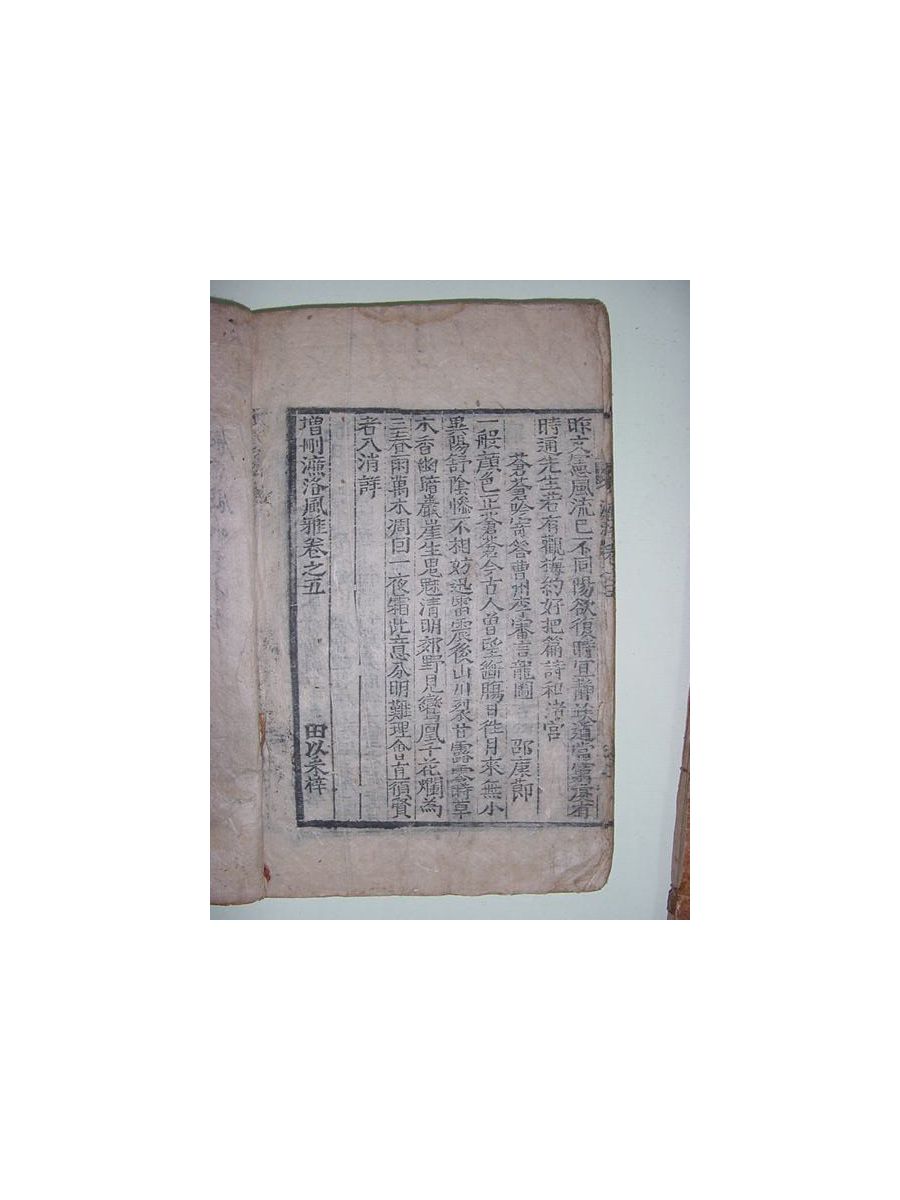 昨文憲風流已不同陽欲復時宜靜 道當窮處有
時通先生若有觀梅約好把篇詩和渚宮
蒼蒼吟寄答曹州李審言龍圖 邵康節
一般顏色正蒼蒼今古人曾望斷腸日往月來無小
異陽舒陰慘不相妨迅雷震後山川裂甘露零時草
木香幽暗巖崖生鬼魅淸明郊野見鸞凰千花爛為
三春雨萬木凋因一夜霜此意分明難理會直須賢
者入消詳
增刪濂洛風雅卷之五 田以采梓